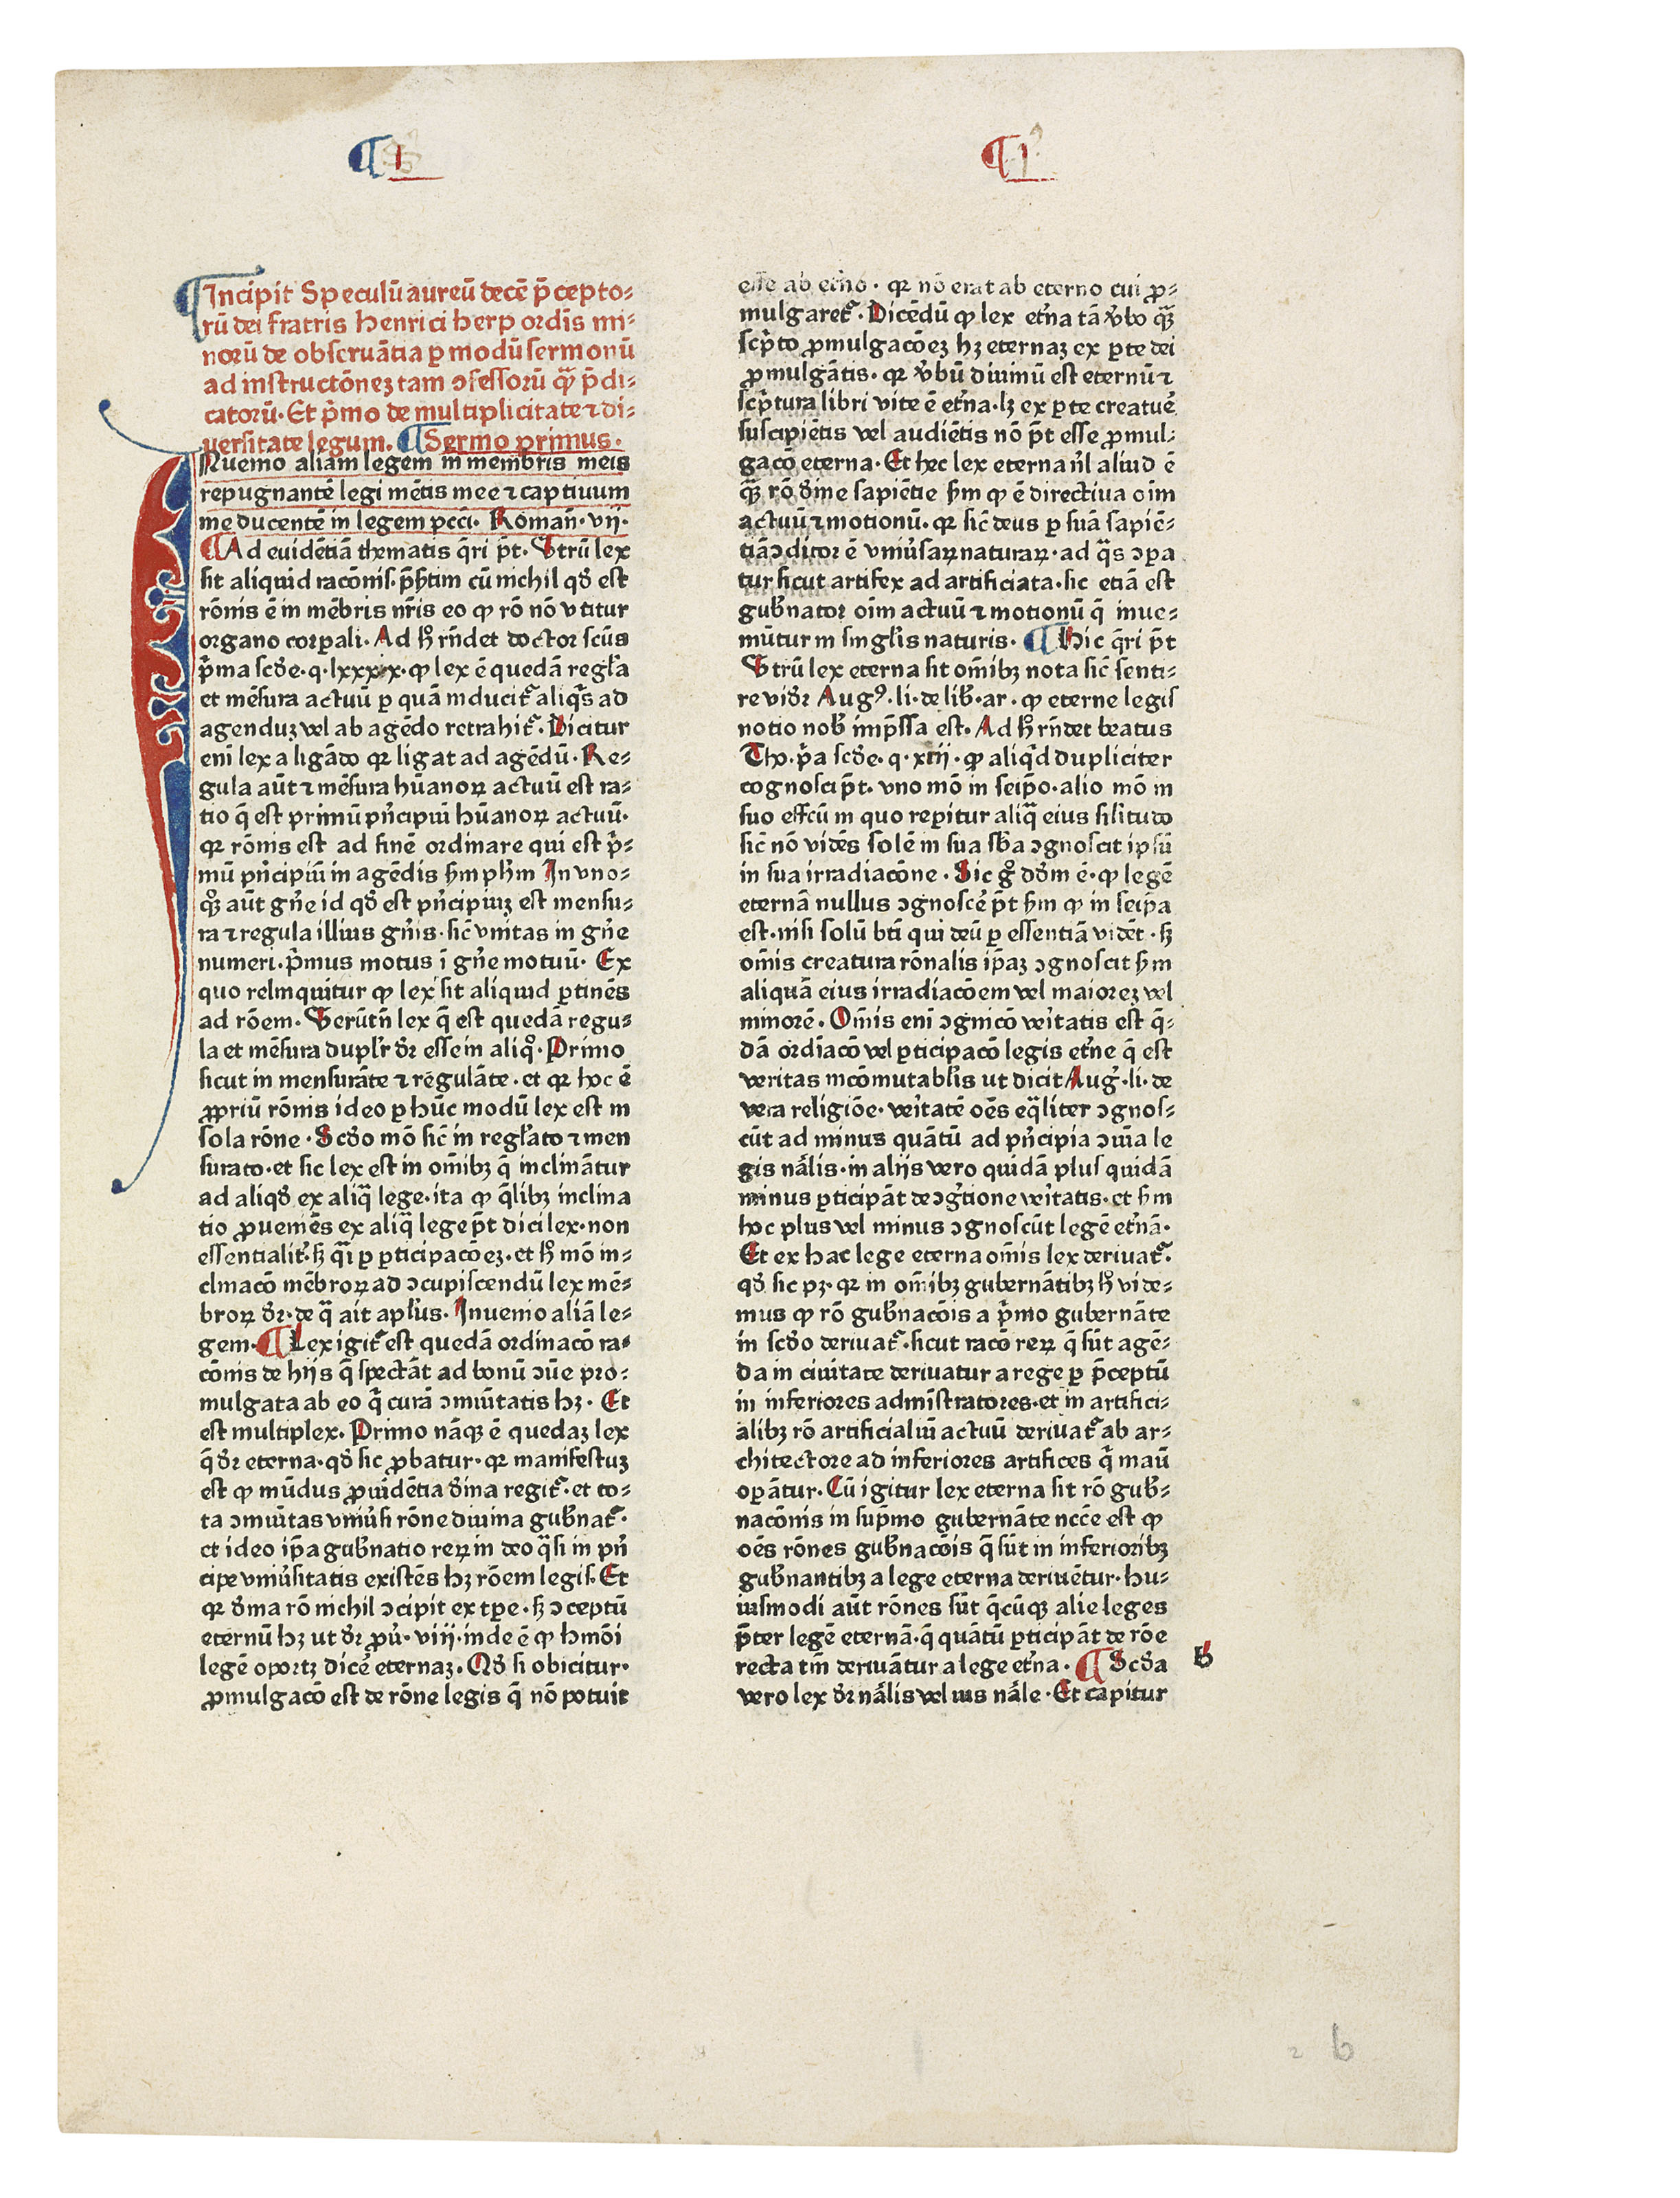 ¶ 1
¶ 1
¶Incipit Speculū aureū decē p̄cepto⸗
rū dei fratris henrici herp ordīs mi⸗
norū de obseruātia ꝑ modū sermonū
ad instructōneꝫ tam ɔfessorū qͣꝫ p̄di⸗
catorū· Et p̄mo de multiplicitate ⁊ di⸗
uersitate legum. ¶Sermo primus·
INuenio aliam legem in membris meis
repugnantē legi mētis mee ⁊ captiuum
me ducentē in legem pcc̄i· Roman̄· vij·
¶Ad euidētiā thematis q̄ri p̄t· Vtrū lex
sit aliquid racōnis· p̄sertim cū nichil qđ est
rōnis ē in mēbris nr̄is eo ꝙ rō nō vtitur
organo corꝑali· Ad hͦ rn̄det doctor scūs
p̄ma scđe· q· lxxxix· ꝙ lex ē quedā regl̄a
et mēsura actuū ꝑ quā inducit᷑ aliqͥs ad
agenduꝫ vel ab agēdo retrahit᷑· Dicitur
eni lex a ligādo qꝛ ligat ad agēdū· Re⸗
gula aūt ⁊ mēsura hūanoꝝ actuū est ra⸗
tio q̄ est primū pͥncipiū hūanoꝝ actuū·
qꝛ rōnis est ad finē ordinare qui est p̄⸗
mū pͥncipiū in agēdis ẜm ph̄m In vno⸗
qͦqꝫ aūt gn̄e id qđ est pͥncipiuꝫ est mensu⸗
ra ⁊ regula illius gn̄is· sic̄ vnitas in gn̄e
numeri· p̄mus motus ī gn̄e motuū· Ex
quo relinquitur ꝙ lex sit aliquid ꝑtinēs
ad rōem· Verūtn̄ lex q̄ est quedā regu⸗
la et mēsura dupl̄r dr̄ esse in aliqͦ· Primo
sicut in mensurāte ⁊ regulāte· et qꝛ hoc ē
ꝓpriū rōnis ideo ꝑ hūc modū lex est in
sola rōne· Scđo mō sic̄ in regl̄ato ⁊ men
surato· et sic lex est in om̄ibꝫ q̄ inclinātur
ad aliqđ ex aliqͣ lege· ita ꝙ q̄libꝫ inclina
tio ꝓueniēs ex aliqͣ lege p̄t dici lex· non
essentialit᷑· sꝫ qͣi ꝑ ꝑticipacōeꝫ· et hͦ mō in⸗
clinacō mēbroꝝ ad ɔcupiscendū lex mē⸗
broꝝ dr̄· de qͣ ait apl̄us· Inuenio aliā le⸗
gem· ¶Lex igit᷑ est quedā ordinacō ra⸗
cōnis de hijs q̄ spectāt ad bonū ɔūe pro⸗
mulgata ab eo qͥ curā ɔmiūtatis hꝫ· Et
est multiplex· Primo nāqꝫ ē quedaꝫ lex
q̄ dr̄ eterna· qđ sic ꝓbatur· qꝛ manifestuꝫ
est ꝙ mūdus ꝓuidētia diīna regit᷑· et to⸗
ta ɔmiūtas vniūsi rōne diuina gub̄nat᷑·
et ideo ip̄a gub̄natio reꝝ in deo qͣsi in pͥn
cipe vniūsitatis existēs hꝫ rōem legis· Et
qꝛ diīna rō nichil ɔcipit ex tꝑe· sꝫ ɔceptū
eternū hꝫ ut dr̄ ꝓū· viij· inde ē ꝙ hmōi
legē oportꝫ dicē eternaꝫ· Qđ si obicitur·
ꝓmulgacō est de rōne legis q̄ nō potuit
esse ab etn̄o· qꝛ nō erat ab eterno cui ꝓ⸗
mulgaret᷑· Dicēdū ꝙ lex etn̄a tā v̄bo qͣꝫ
sc̄pto ꝓmulgacōeꝫ hꝫ eternaꝫ ex ꝑte dei
ꝓmulgātis· qꝛ v̄bū diuinū est eternū ⁊
sc̄ptura libri vite ē etn̄a· lꝫ ex ꝑte creatuē
suscipiētis vel audiētis nō p̄t esse ꝓmul⸗
gacō eterna· Et hec lex eterna nͥl aliud ē
qͣꝫ rō diīne sapiētie ẜm ꝙ ē directiua oīm
actuū ⁊ motionū· qꝛ sic̄ deus ꝑ suā sapiē⸗
tiā ɔditor ē vniūsaꝝ naturaꝝ· ad qͣs ɔꝑa
tur sicut artifex ad artificiata· sic etiā est
gub̄nator oīm actuū ⁊ motionū q̄ inue⸗
niūtur in singl̄is naturis· ¶Hic q̄ri p̄t
Vtrū lex eterna sit om̄ibꝫ nota sic̄ senti⸗
re videt᷑ Augꝰ· li· de lib̄· ar· ꝙ eterne legis
notio nob̄ imp̄ssa est· Ad hͦ rn̄det beatus
Tho· p̄a scđe· q· xciij· ꝙ aliqͥd dupliciter
cognosci p̄t· vno mō in seip̄o· alio mō in
suo effcū in quo reꝑitur aliqͣ eius silitudo
sic̄ nō vidēs solē in sua sb̄a ɔgnoscit ipsū
in sua irradiacōne· Sic gͦ dđm ē· ꝙ legē
eternā nullus ɔgnoscē p̄t ẜm ꝙ in seip̄a
est· nisi solū bt̄i qui deū ꝑ essentiā vidēt· sꝫ
om̄is creatura rōnalis ip̄aꝫ ɔgnoscit ẜm
aliquā eius irradiacōem vel maioreꝫ vel
minorē· Om̄is eni ɔgnicō veītatis est q̄⸗
dā ordīacō vel ꝑticipacō legis etn̄e q̄ est
veritas incōmutabl̄is ut dicit Augͥ· li· de
vera religiōe· veītatē oēs eq̄liter ɔgnos⸗
cūt ad minus quātū ad pͥncipia ɔīa le
gis nālis· in alijs vero quidā plus quidā
minus ꝑticipāt de ɔgͥtione veītatis· et ẜm
hoc plus vel minus ɔgnoscūt legē etn̄ā·
Et ex hac lege eterna om̄is lex deriuat᷑·
qđ sic pꝫ· qꝛ in om̄ibꝫ gubernātibꝫ hͦ vide⸗
mus ꝙ rō gub̄nacōis a p̄mo gubernāte
in scđo deriuat᷑· sicut racō reꝝ q̄ sūt agē⸗
da in ciuitate deriuatur a rege ꝑ p̄ceptū
in inferiores admīstratores· et in artifici⸗
alibꝫ rō artificialiū actuū deriuat᷑ ab ar⸗
chitectore ad inferiores artifices qͥ manū
oꝑātur· Cū igitur lex eterna sit rō gub̄⸗
nacōnis in sup̄mo gubernāte necc̄e est ꝙ
oēs rōnes gub̄nacōis q̄ sūt in inferioribꝫ
gub̄nantibꝫ a lege eterna deriuētur· hu⸗
iusmodi aūt rōnes sūt q̄cūqꝫ alie leges
p̄ter legē eternā· q̄ quātū ꝑticipāt de rōe
recta tm̄ deriuātur a lege etn̄a· ¶Scđa
B
vero lex dr̄ nālis vel ius nāle· Et capitur
2 b